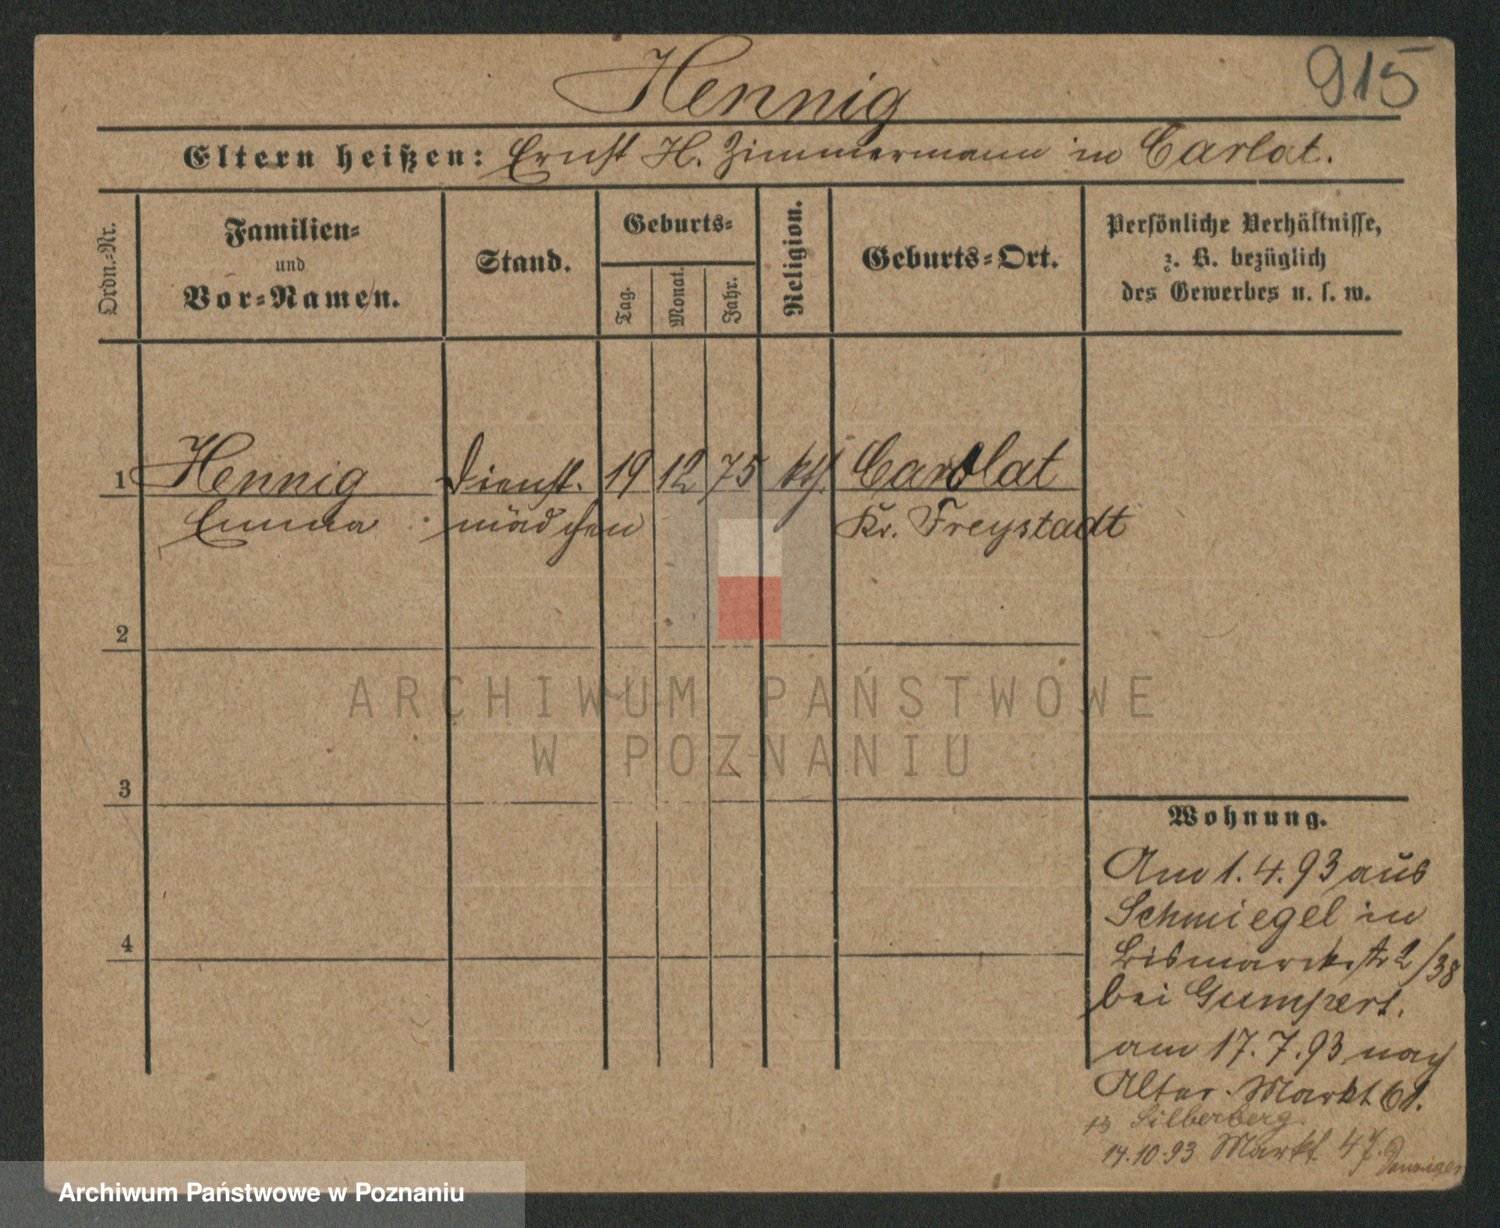 Hennig
915
Eltern heißen: Ernst H. Zimmermann in Carlat.
Ordn.-Nr.
Familien-
und
Vor-Namen.
Stand.
Geburts-
Tag.
Monat.
Jahr.
Religion.
Geburts-Ort.
Persönliche Verhältnisse,
z. B. bezüglich
des Gewerbes u. s. w.
1 Hennig Dienst- 19 12 75 kth. Carolat
Emma mädchen Kr. Freystadt
2
3
4
ARCHIWUM PAŃSTWOWE
W POZNANIU
Wohnung.
Am 1.4.93 aus
Schmiegel in
Bismarckstr 2/38
bei Gumpert.
am 17.7.93 nach
Alter Markt 61.
Silberberg
14.10.93 Markt 47. Danziger
Archiwum Państwowe w Poznaniu